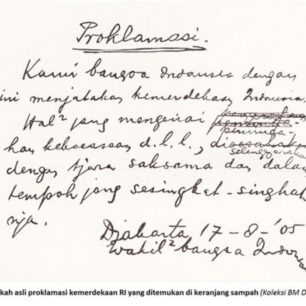 Proklamasi.
Kami bangsa Indonesia dengan
ini menjatakan kemerdekaan Indonesia.
Hal² jang mengenai
peminda-
han kekoeasaan d.l.l.,
diselenggarakan
dengan tjara saksama dan dalam
tempoh jang sesingkat-singkat-
nja.
Djakarta 17-8-'05
Wakil² bangsa Indon
kah asli proklamasi kemerdekaan RI yang ditemukan di keranjang sampah (Koleksi BM D